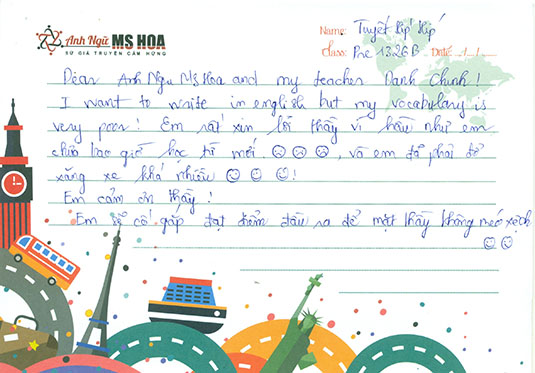 Anh Ngữ MS HOA
SỨ GIẢ TRUYỀN CẢM HỨNG
Name: Tuyết Kíp Kíp
Class: Pre 1326B Date: / /
Dear Anh Ngu Ms Hoa and my teacher Danh Chinh!
I want to write in english but my vocabulary is
very poor! Em rất xin lỗi thầy vì hầu như em
chưa bao giờ học từ mới. ☹ ☹ ☹, và em đã phải đổ
xăng xe khá nhiều ☺ ☺ ☺!
Em cảm ơn thầy!
Em sẽ cố gắp đạt điểm đầu ra để mặt thầy không méo xệch
☺ ☺